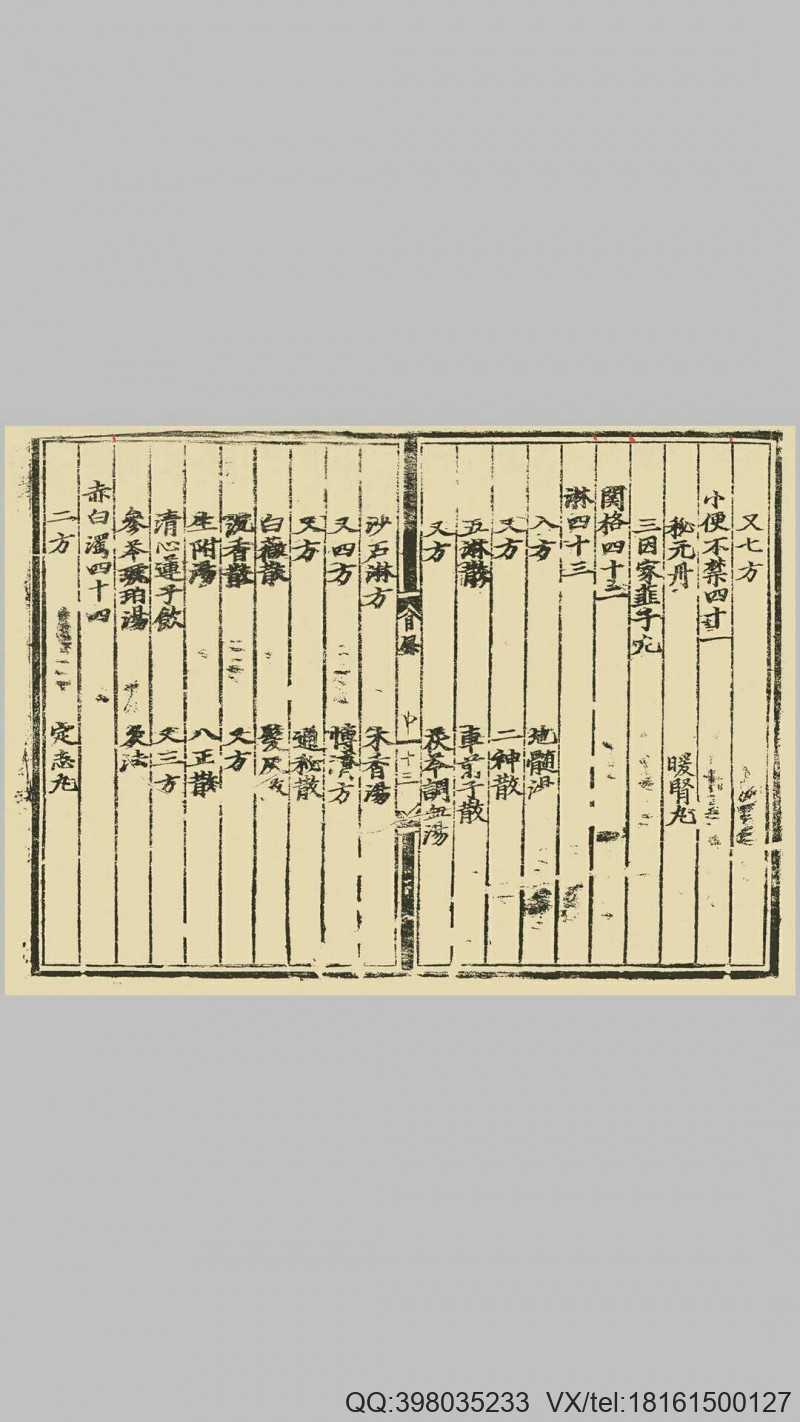 又七方
小便不禁四十二
秘元丹 暖腎丸
三因家韮子丸
関格四十三
淋四十三
入方 地髓湯
又方 二神散
五淋散 車前子散
又方 茯苓調血湯
十三
沙石淋方 木香湯
又四方 博濟方
又方 通秘散
白薇散 髮灰散
沉香散 又方
生附湯 八正散
清心蓮子飲 又三方
參苓琥珀湯 灸法
赤白濁四十四
二方 定志丸
QQ:398035233 VX/tel:18161500127